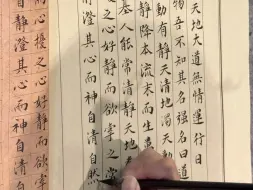 天地大道無情運行日
物吾不知其名強名曰道
動有靜天清地濁天動
靜降本流末而生萬
基人能常清靜天地
之心好靜而欲牽之常
澄其心而神自清自然
而心擾之心好靜而欲牽之
靜澄其心而神自清